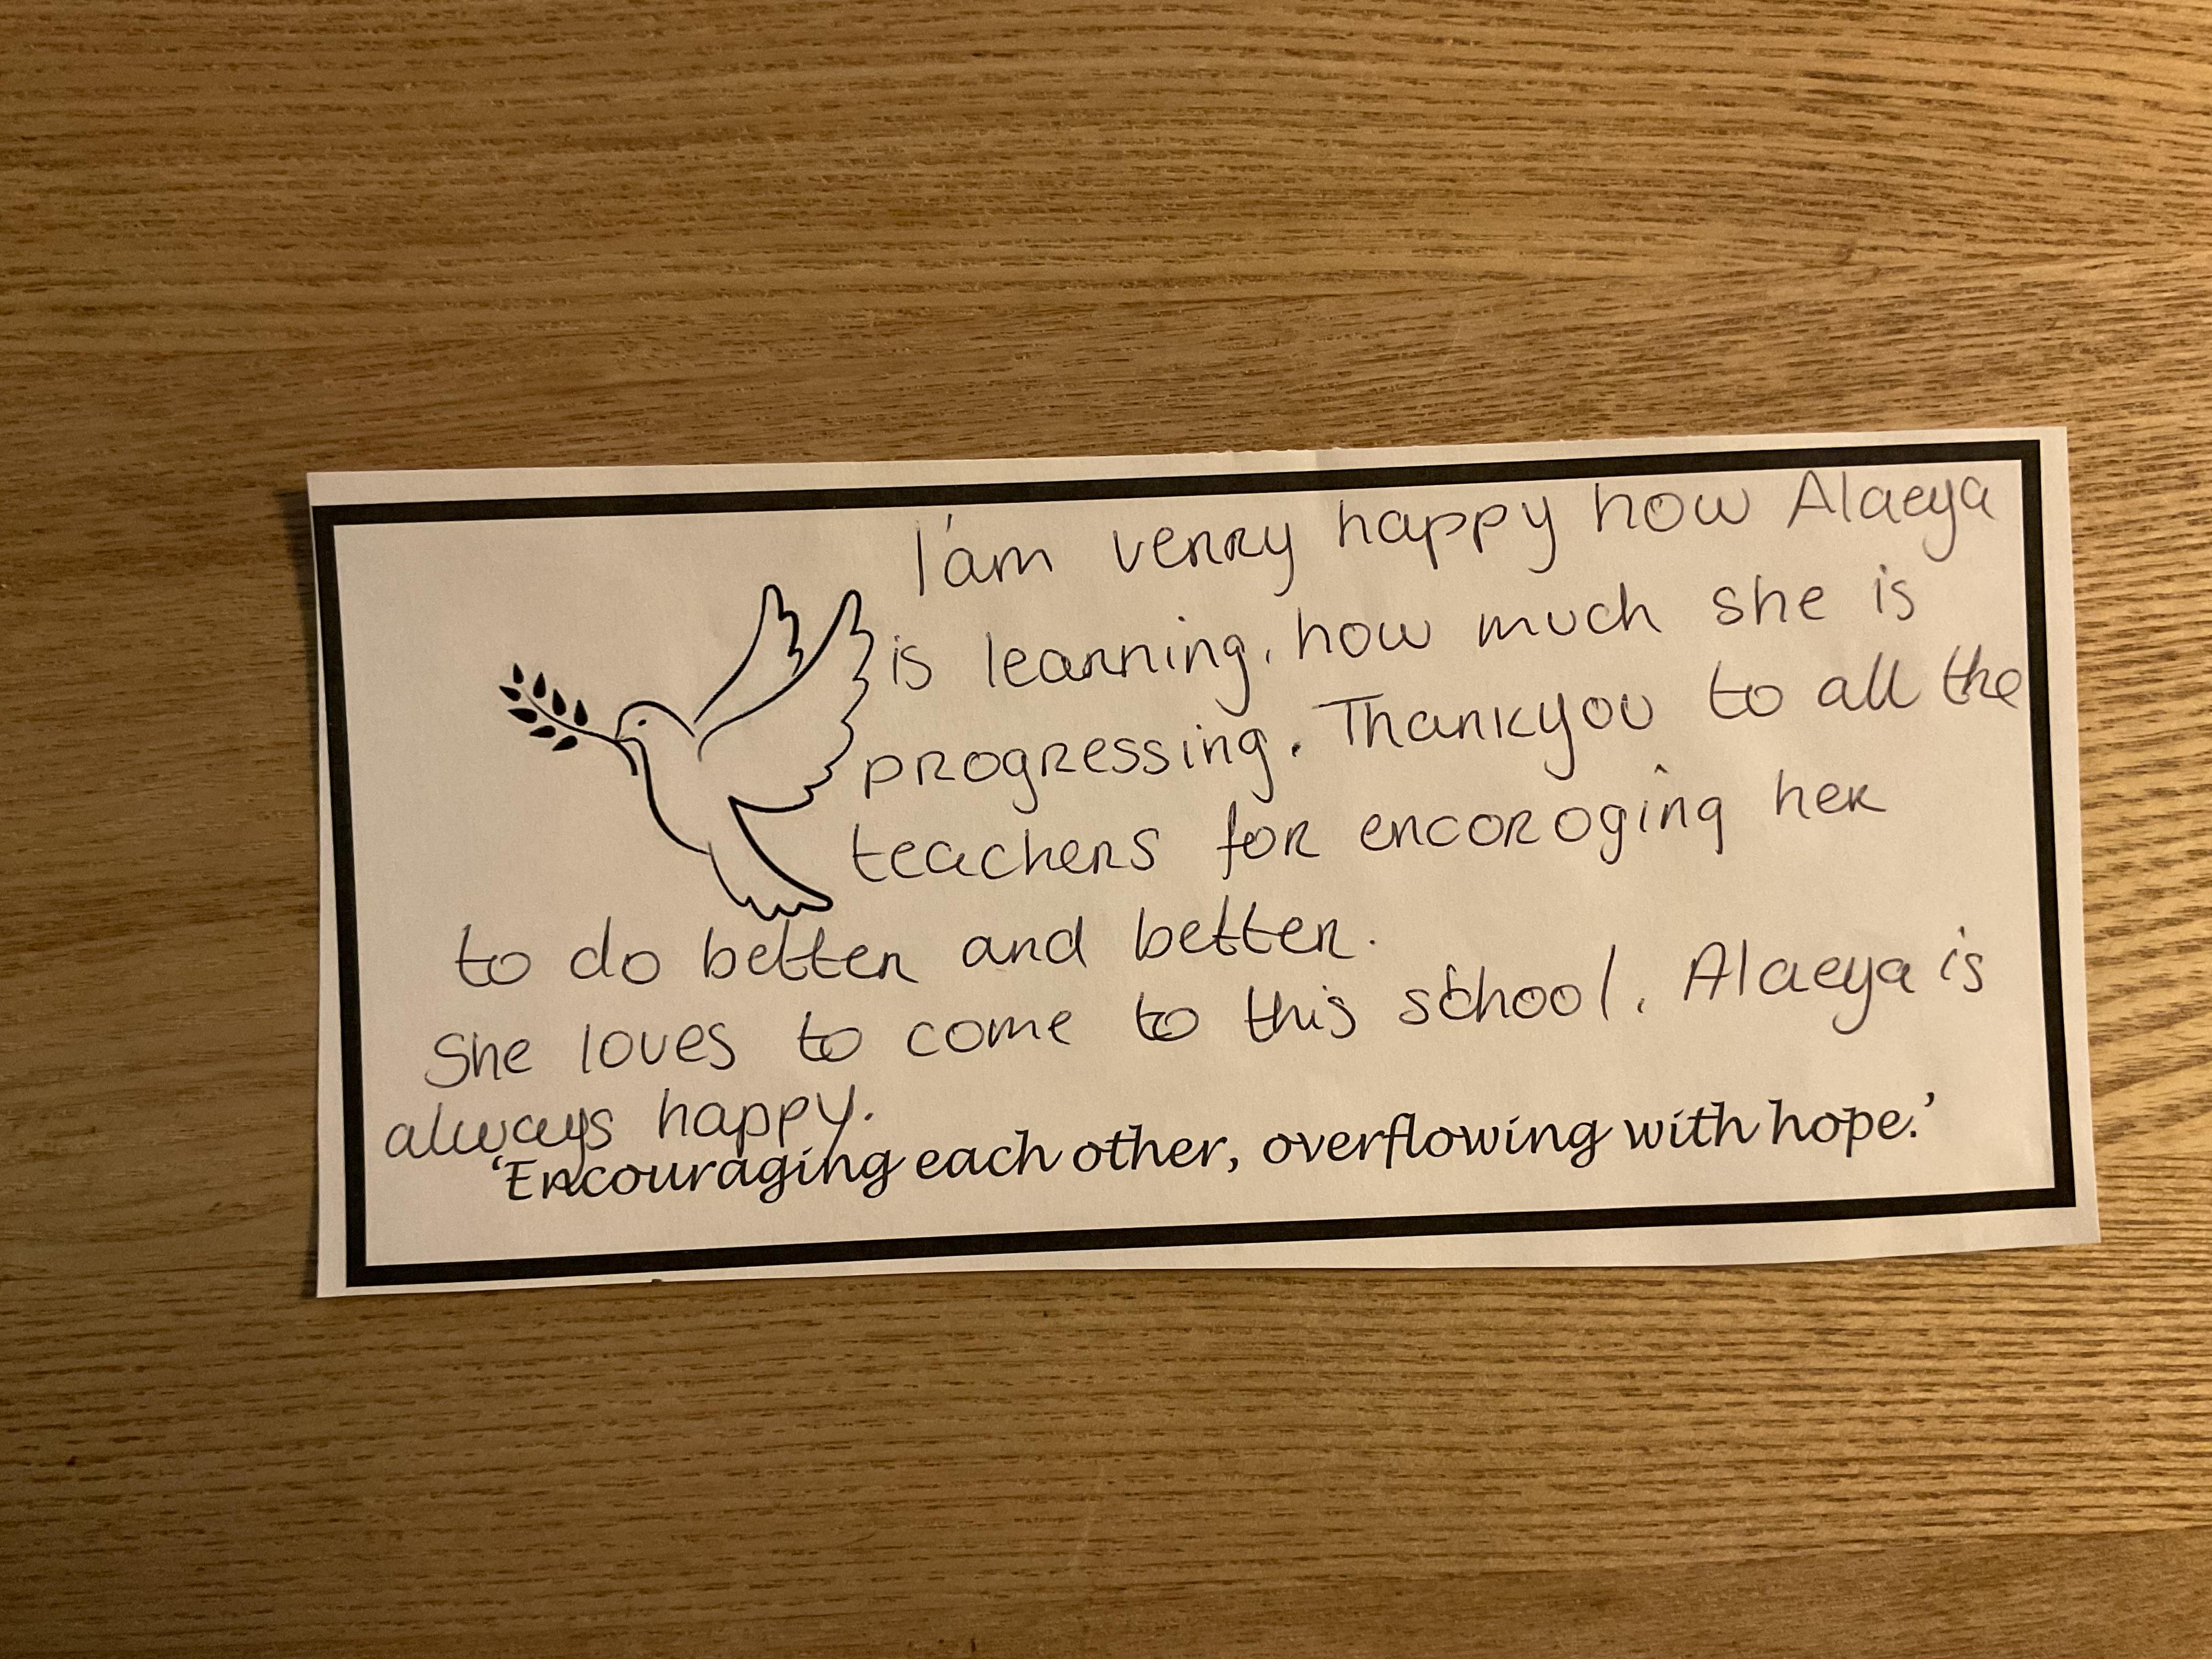 I'am verry happy how Alaeya
is learning, how much she is
progressing. Thankyou to all the
teachers for encoroging her
to do better and better.
She loves to come to this school. Alaeya is
always happy.
'Encouraging each other, overflowing with hope.'